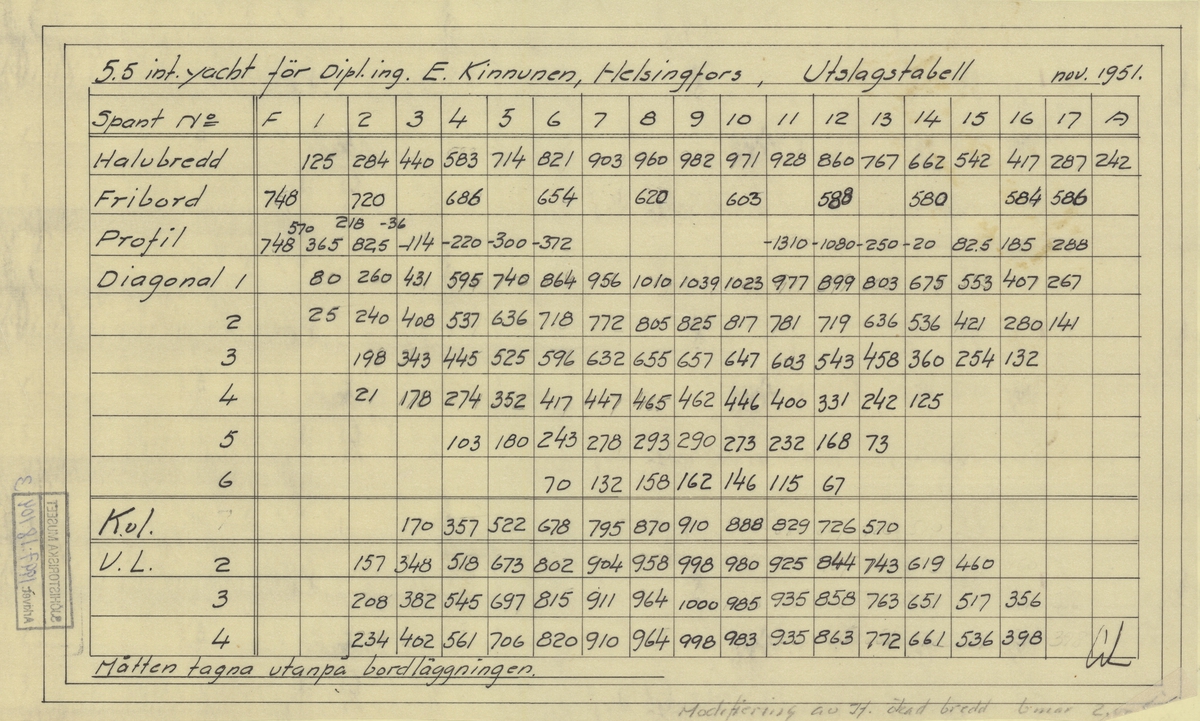 5.5 int. yacht för Dipl.ing. E. Kinnunen, Helsingfors, Utslagstabell nov. 1951.
Spant No F 1 2 3 4 5 6 7 8 9 10 11 12 13 14 15 16 17 A
Halvbredd 125 284 440 583 714 821 903 960 982 971 928 860 767 662 542 417 287 242
Fribord 748 720 686 654 620 603 588 580 584 586
570 218 -36
Profil 748 365 82,5 -114 -220 -300 -372 -1310 -1080 -250 -20 82.5 185 288
Diagonal 1 80 260 431 595 740 864 956 1010 1039 1023 977 899 803 675 553 407 267
2 25 240 408 537 636 718 772 805 825 817 781 719 636 536 421 280 141
3 198 343 445 525 596 632 655 657 647 603 543 458 360 254 132
4 21 178 274 352 417 447 465 462 446 400 331 242 125
5 103 180 243 278 293 290 273 232 168 73
6 70 132 158 162 146 115 67
Kvl. 170 357 522 678 795 870 910 888 829 726 570
V.L. 2 157 348 518 673 802 904 958 998 980 925 844 743 619 460
3 208 382 545 697 815 911 964 1000 985 935 858 763 651 517 356
4 234 402 561 706 820 910 964 998 983 935 863 772 661 536 398
Måtten tagna utanpå bordläggningen.
Modifiering av bredd
SJÖHISTORISKA MUSEET